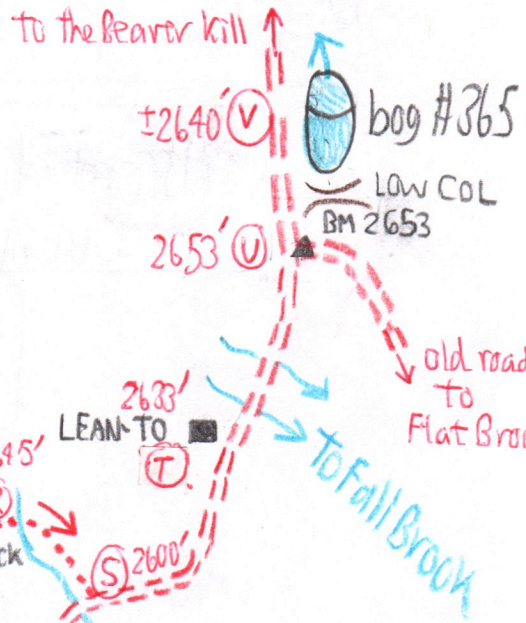 to the Beaver Kill
±2640' V
bog #365
LOW COL
BM 2653
2653' U
old road
to
2633'
LEAN-TO
T
to Fall Brook
45'
S 2600'